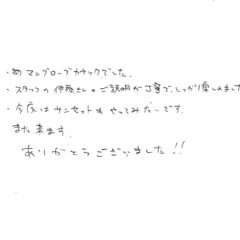 ・初マングローブカヤックでした。
・スタッフの伊藤さんのご説明が丁寧で、しっかり楽しめました
・今度はサンセットもやってみたいです。
また来ます。
ありがとうございました!!